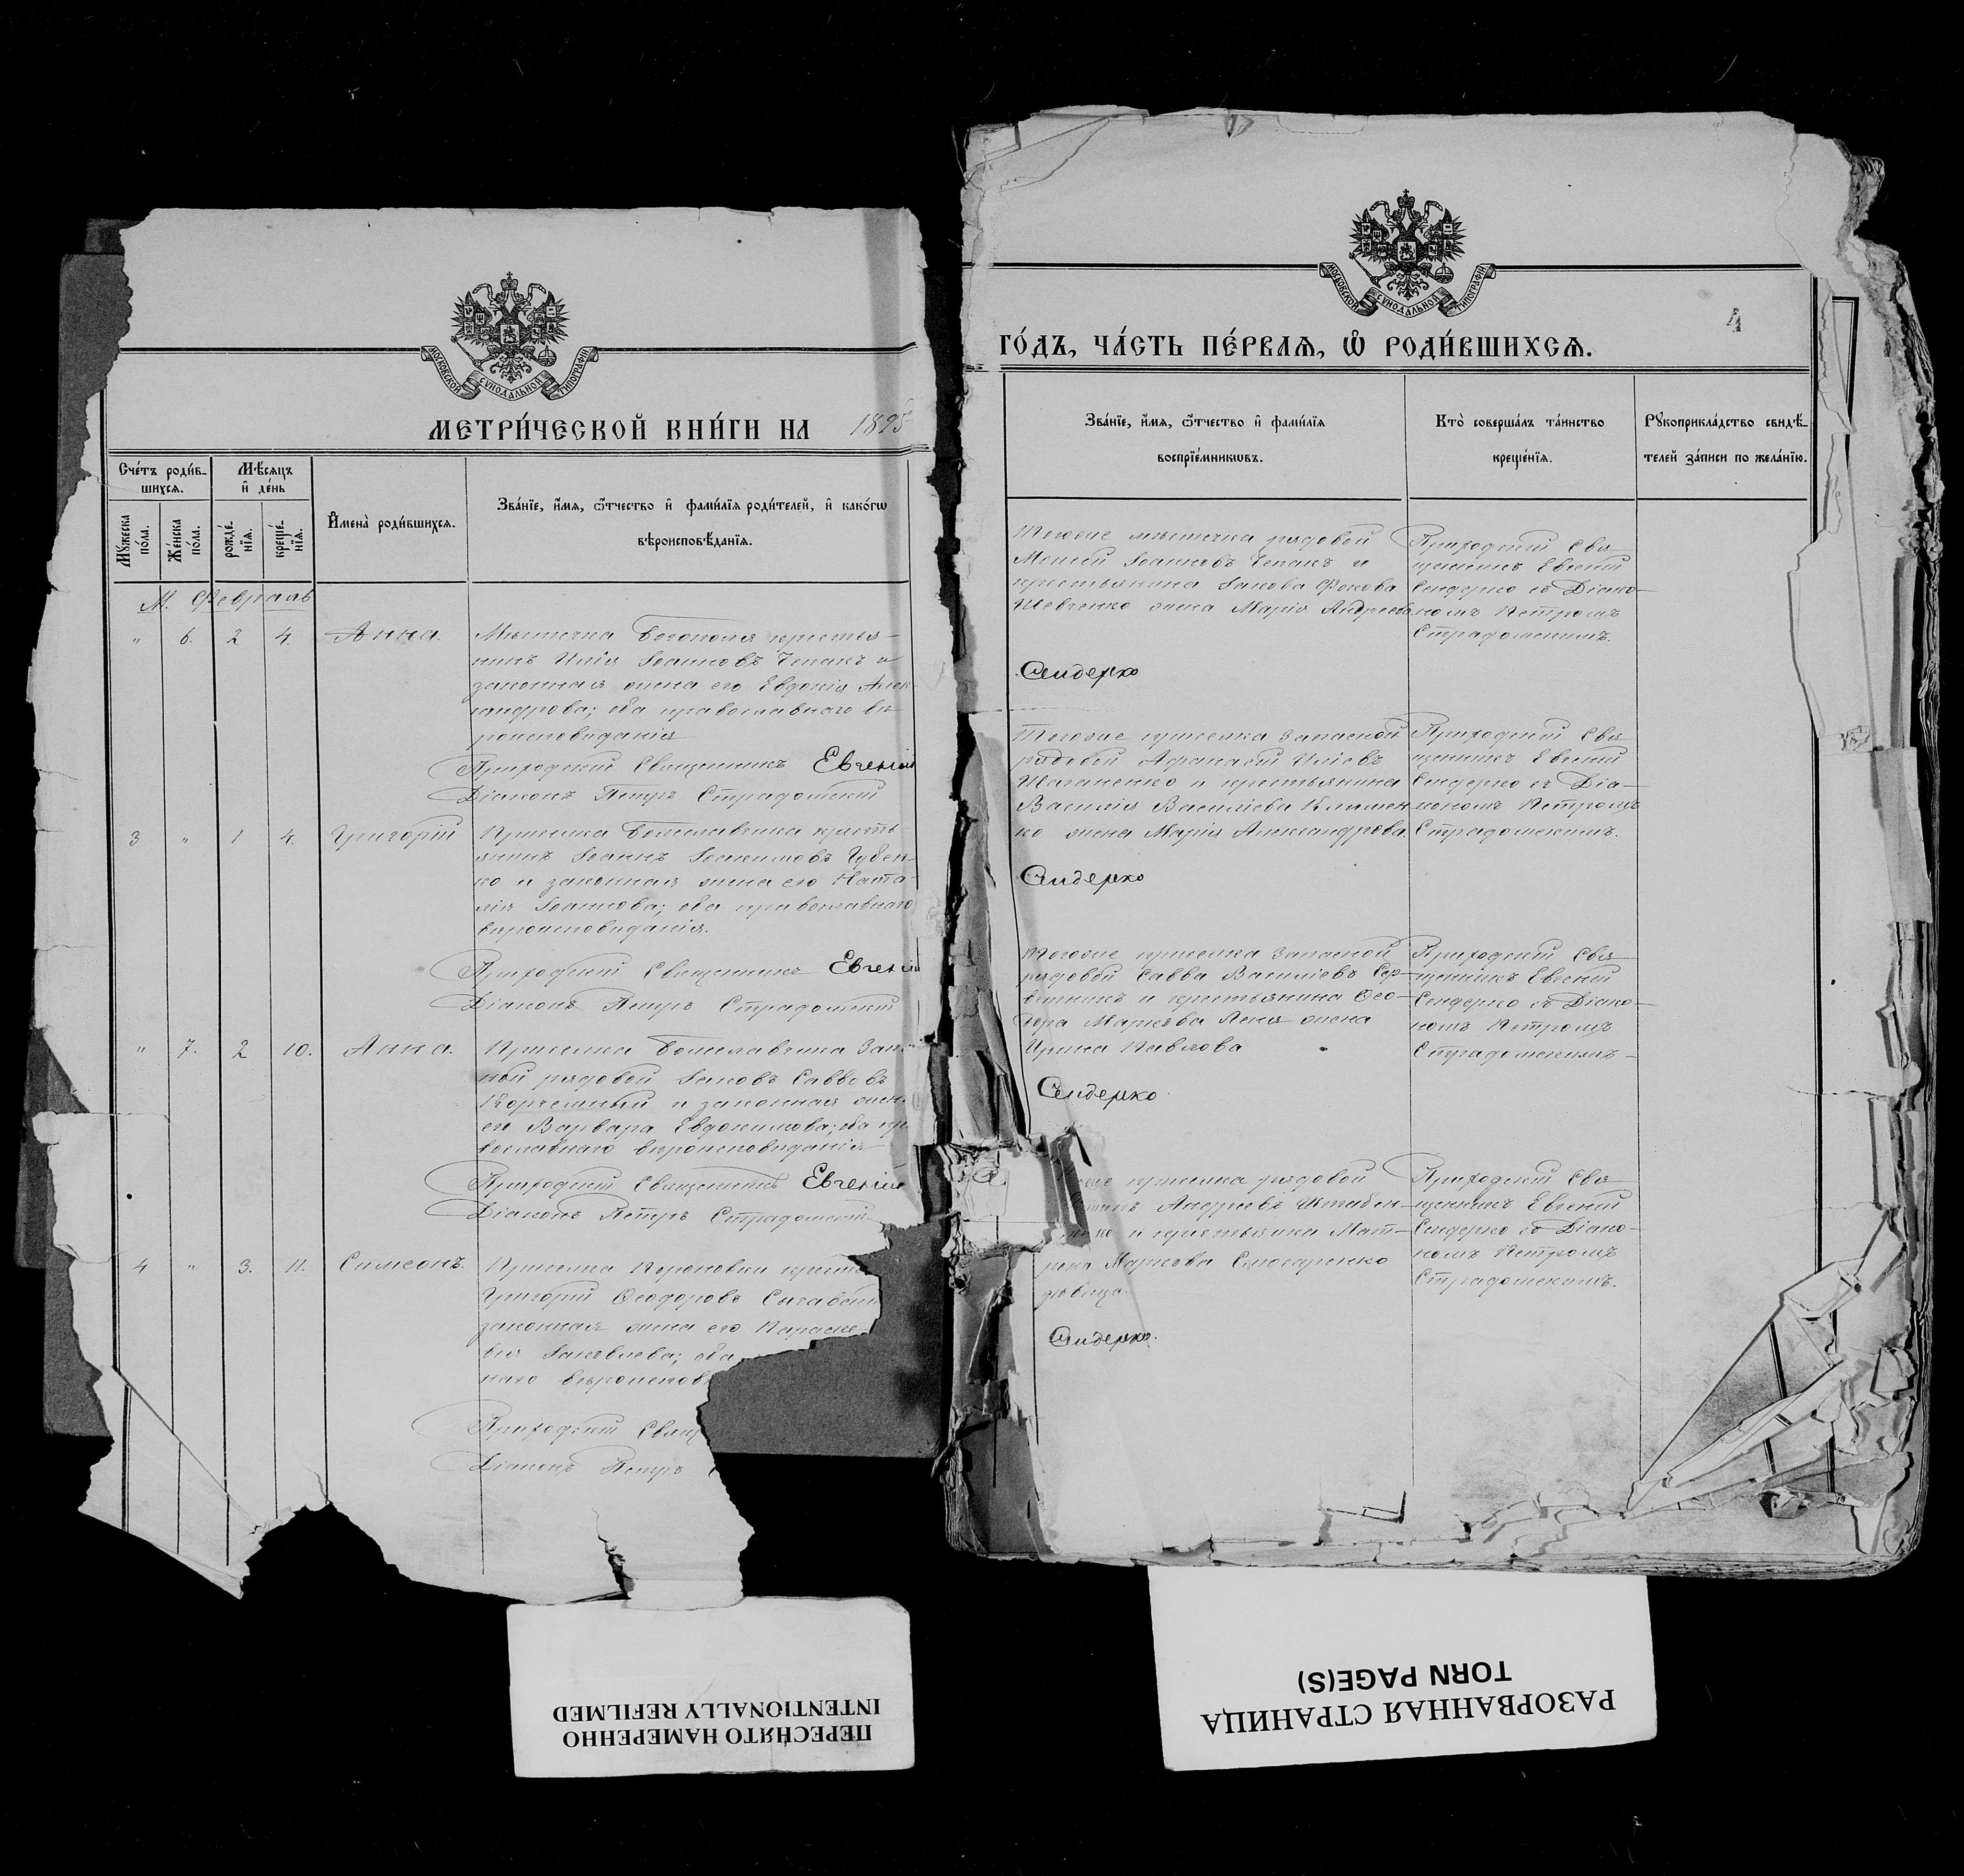 МОСКОВСКОЙ СѴНОДАЛЬНОЙ ТИПОГРАФІИ
МЕТРИ́ЧЕСКОЙ КНИ́ГИ НА 1895
Сче́тъ роди́в-
шихсѧ.
Мѣ́сяцъ
и҆ де́нь
Мꙋ́жеска по́ла.
Же́нска по́ла.
рожде́-
нїѧ.
креще́-
нїѧ.
И҆мена̀ роди́вшихсѧ.
Зва́нїе, и҆́мѧ, ѻ҆́тчество и҆ фами́лїѧ роди́телей, и҆ како́гѡ
вѣроисповѣ́данїѧ.
М. Февраль
" 6. 2 4. Анна.
Мѣстечка Богополя крестья-
нинъ Илія Іоанновъ Чепакъ и
законная жена его Евдокія Алек-
сандрова; оба православнаго вѣ-
роисповѣданія
Приходскій Священникъ Евгеній
Діаконъ Петръ Страдомскій
3 " 1 4. Григорій
Приселка Болеславчика кресть
янинъ Іоаннъ Іоакимовъ Губен-
ко и законная жена его Ната-
лія Іоаннова; оба православнаго
вѣроисповѣданія.
Приходскій Священникъ Евгеній
Діаконъ Петръ Страдомскій
" 7. 2 10. Анна.
Приселка Болеславчика Зап
ной рядовой Іаковъ Савовъ
Корчемный и законная жен
его Варвара Евдокимова; оба пр
вославнаго вѣроисповѣданія
Приходскій Священникъ Евгеній
Діаконъ Петръ Страдомскій
4 " 3. 11. Симеонъ.
Приселка крест
Григорій Ѳеодоровъ
законная жена его Параске-
вія Іаковлева; оба
наго вѣроисповѣ
Приходскій Свящ
Діаконъ Петръ
МОСКОВСКОЙ СѴНОДАЛЬНОЙ ТИПОГРАФІИ
4
ГО́ДЪ, ЧА́СТЬ ПЕ́РВАѦ, Ѽ РОДИ́ВШИХСѦ.
Зва́нїе, и҆́мѧ, ѻ҆́тчество и҆ фами́лїѧ
воспрїе́мникѡвъ.
Кто̀ соверша́лъ та́инство
креще́нїѧ.
Рꙋкоприкла́дство свидѣ́-
телей за́писи по жела́нїю.
Тогоже мѣстечка рядовой
Моисей Іоанновъ Чепакъ и
крестьянина Іакова Фокова
Шевченко жена Марія Андреева
Приходскій Свя
щенникъ Евгеній
Сендерко съ Діако-
номъ Петромъ
Страдомскимъ.
Сендерко
Тогоже приселка Запасной
рядовой Афанасій Иліевъ
Шаганенко и крестьянина
Василія Василіева Климен
ко жена Марія Александрова.
Приходскій Свя
щенникъ Евгеній
Сендерко съ Діа-
кономъ Петромъ
Страдомскимъ.
Сендерко
Тогоже приселка Запасной
рядовой Савва Василіевъ Сер-
и крестьянина Ѳео-
дора Маркова жена
Ирина Павлова
Приходскій Свя
щенникъ Евгеній
Сендерко съ Діако-
номъ Петромъ
Страдомскимъ
Сендерко
приселка рядовой
Андреевъ
и крестьянка Мат-
рона Маркова Слюсаренко
дѣвица.
Приходскій Свя
щенникъ Евгеній
Сендерко съ Діако-
номъ Петромъ
Страдомскимъ.
Сендерко.
ПЕРЕСНЯТО НАМЕРЕННО
INTENTIONALLY REFILMED
РАЗОРВАННАЯ СТРАНИЦА
TORN PAGE(S)